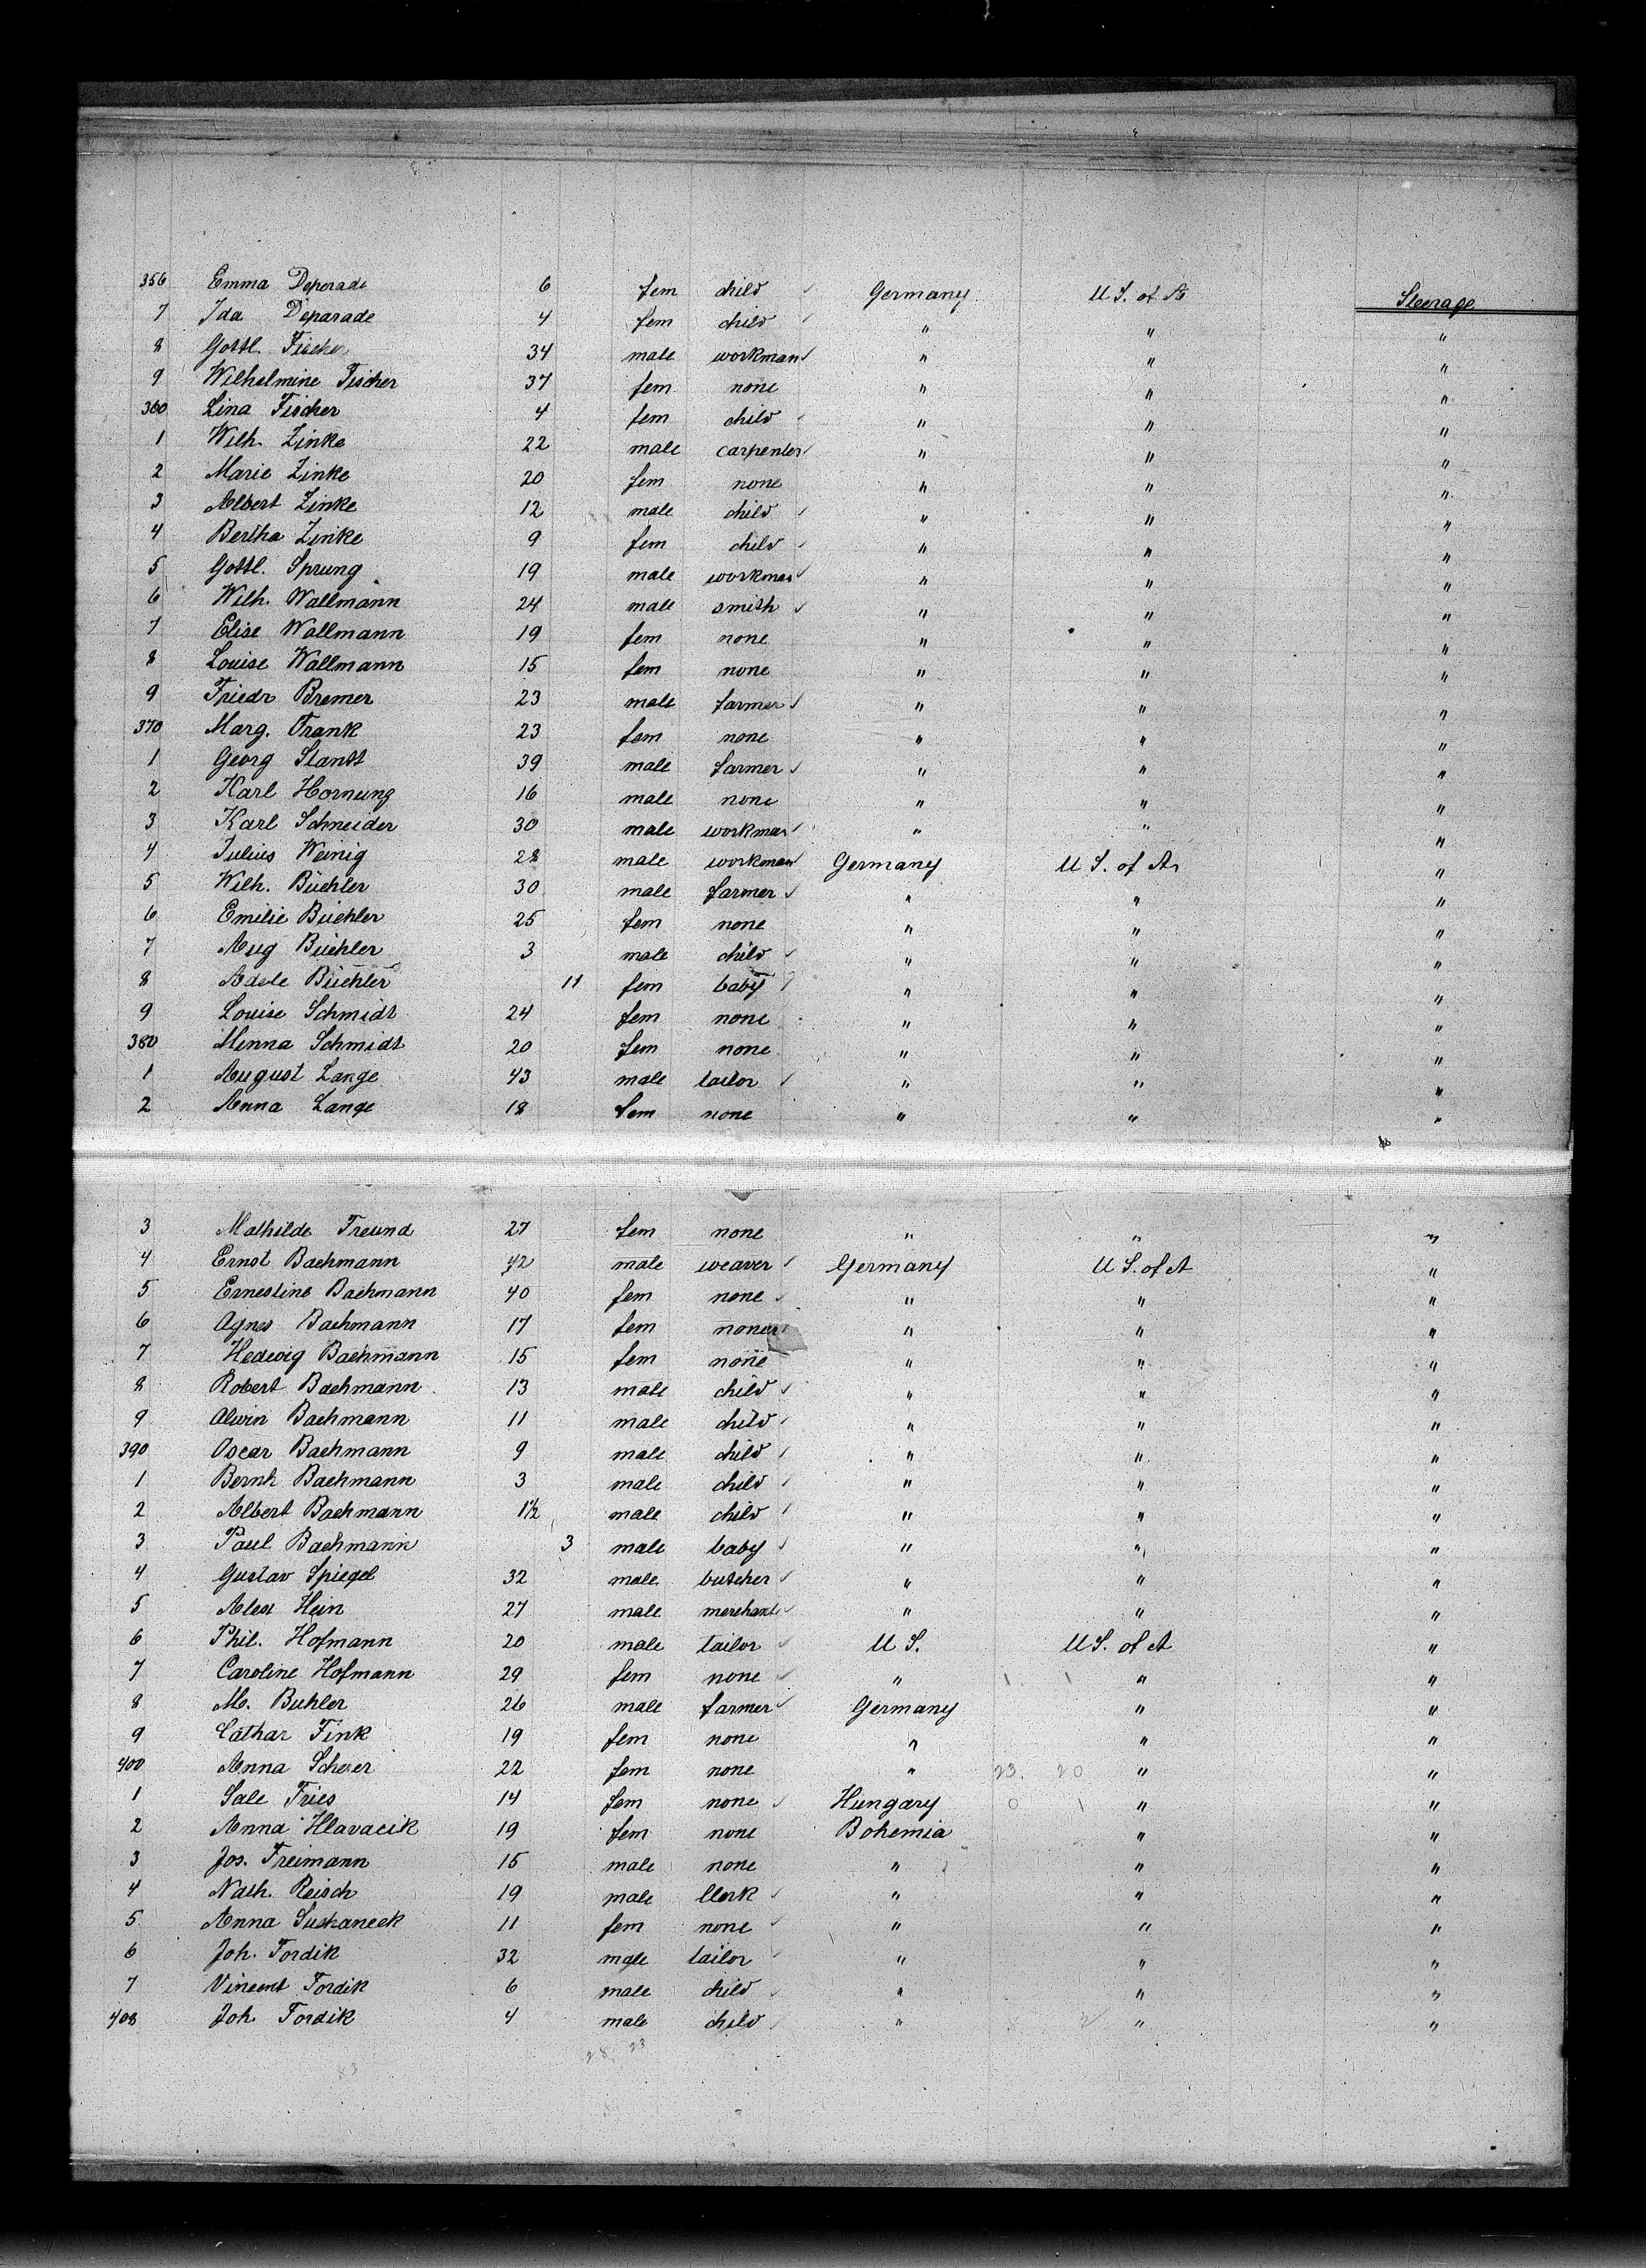 356 Emma Deparade 6 fem child Germany U S. of A Steerage
7 Ida Deparade 4 fem child " " "
8 Gottl. Fischer 34 male workman " " "
9 Wilhelmine Fischer 37 fem none " " "
360 Lina Fischer 4 fem child " " "
1 Wilh. Zinke 22 male carpenter " " "
2 Marie Zinke 20 fem none " " "
3 Albert Zinke 12 male child " " "
4 Bertha Zinke 9 fem child " " "
5 Gottl. Sprung 19 male workman " " "
6 Wilh. Wallmann 24 male smith " " "
7 Elise Wallmann 19 fem none " " "
8 Louise Wallmann 15 fem none " " "
9 Friedr Bremer 23 male farmer " " "
370 Marg. Frank 23 fem none " " "
1 Georg 39 male farmer " " "
2 Karl Hornung 16 male none " " "
3 Karl Schneider 30 male workman " " "
4 Julius Weinig 28 male workman Germany U S. of A "
5 Wilh. Büehler 30 male farmer " " "
6 Emilie Büehler 25 fem none " " "
7 Aug Büehler 3 male child " " "
8 Adele Büehler 11 fem baby " " "
9 Louise Schmidt 24 fem none " " "
380 Minna Schmidt 20 fem none " " "
1 August Lange 43 male tailor " " "
2 Anna Lange 18 fem none " " "
3 Mathilde Freund 27 fem none " " "
4 Ernst Bachmann 42 male weaver Germany U S. of A "
5 Ernestine Bachmann 40 fem none " " "
6 Agnes Bachmann 17 fem none " " "
7 Hedwig Bachmann 15 fem none " " "
8 Robert Bachmann 13 male child " " "
9 Alwin Bachmann 11 male child " " "
390 Oscar Bachmann 9 male child " " "
1 Bernh Bachmann 3 male child " " "
2 Albert Bachmann 1½ male child " " "
3 Paul Bachmann 3 male baby " " "
4 Gustav Spiegel 32 male butcher " " "
5 Alex Hein 27 male merchant " " "
6 Phil. Hofmann 20 male tailor U S. U S. of A "
7 Caroline Hofmann 29 fem none " 1 1 " "
8 M. Buhler 26 male farmer Germany " "
9 Cathar Fink 19 fem none " " "
400 Anna Scherer 22 fem none " 23. 20 " "
1 Sale Fries 14 fem none Hungary 0 1 " "
2 Anna Hlavacik 19 fem none Bohemia " "
3 Jos. Freimann 15 male none " " "
4 Nath. Reisch 19 male Clerk " " "
5 Anna Sushaneck 11 fem none " " "
6 Joh. Tordik 32 male tailor " " "
7 Vincent Tordik 6 male child " " "
408 Joh. Tordik 4 male child " " "
28, 23
83